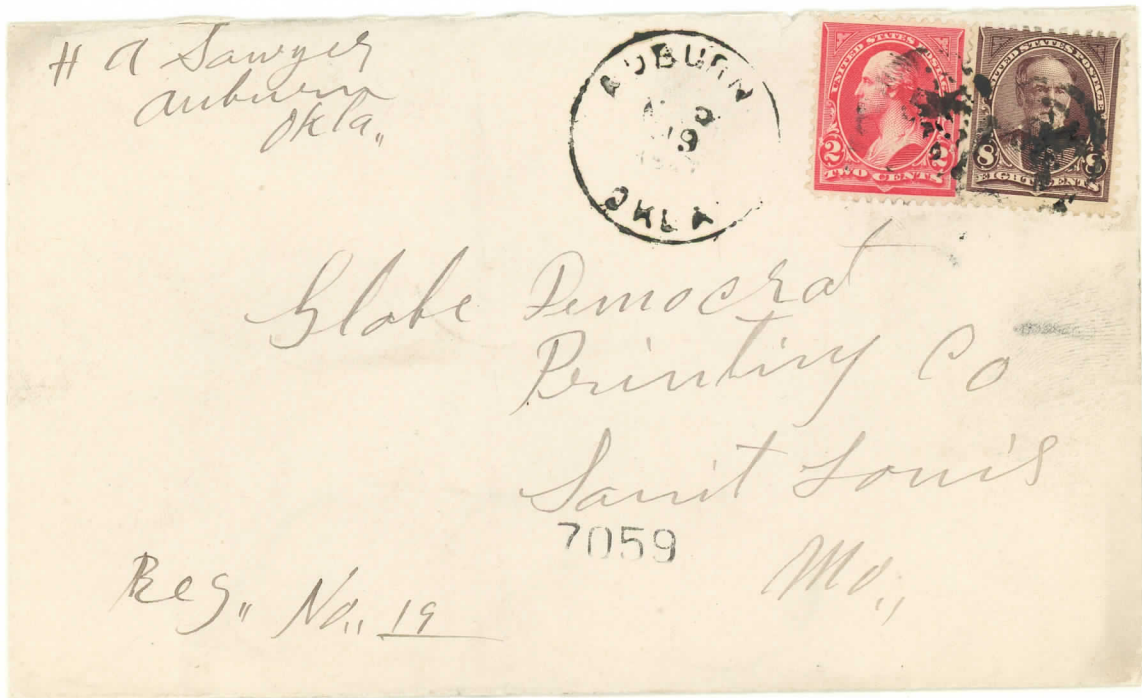 H A Sawyer
Auburn
Okla,,
AUBURN
9
OKLA
UNITED STATES POSTAGE
2 2
TWO CENTS
UNITED STATES POSTAGE
8 8
EIGHT CENTS
Globe Democrat
Printing Co
Sanit Louis
7059
Mo,,
Reg,, No,, 19